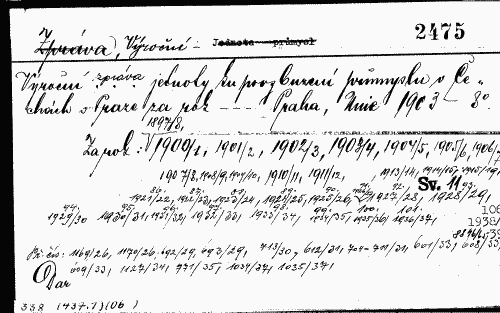 2475
Zpráva, Výroční - Jednota průmysl
Výroční zpráva jednoty ku povzbuzení průmyslu v Če-
chách v Praze za rok - - - - Praha, Unie 1903 - 8°
1897/8,
Za rok: 1900/1, 1901/2, 1902/3, 1903/4, 1904/5, 1905/6, 1906/
1907/8, 1908/9, 1909/10, 1910/11, 1911/12, 1913/14, 1914/15,
Sv. 11
1921/22, 1922/23, 1923/24, 1927/28, 1928/29,
1929/30 1930/31, 1931/32, 1932/33, 1933/34, 1934/35, 1935/36, 1936/37,
1938/
Př. čís: 1169/26, 1170/26, 692/29, 693/29, 713/30, 612/31, 704-701/31, 601/33, 608/33,
609/33, 1127/34, 771/35, 1034/37, 1035/37,
Dar
338 (437.1)(06)